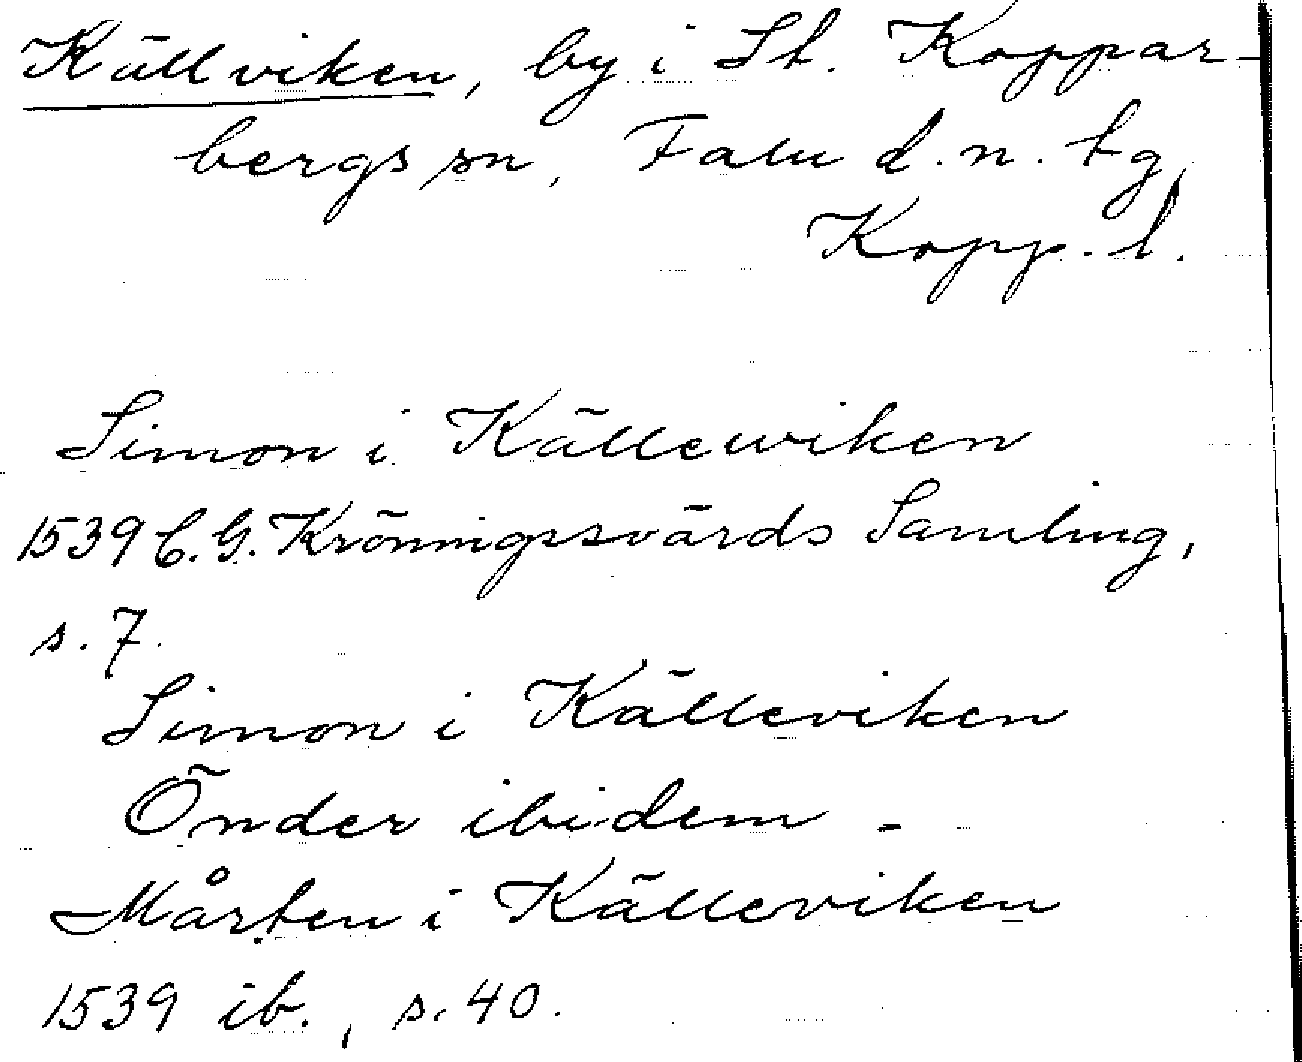 Källviken, by i St. Koppar-
bergs sn, Falu d.n. tg,
Kopp. l.
Simon i Källewiken
1539 C.G. Kröningssvärds Samling,
s. 7.
Simon i Källeviken
Önder ibidem -
Mårten i Källeviken
1539 ib., s. 40.